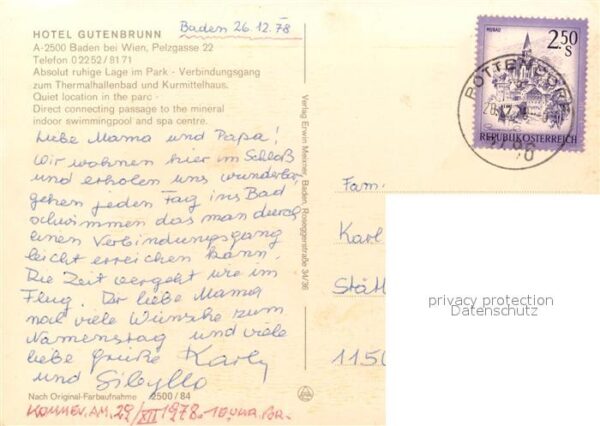 HOTEL GUTENBRUNN
Baden 26.12.78
A-2500 Baden bei Wien, Pelzgasse 22
Telefon 0 22 52 / 81 71
Absolut ruhige Lage im Park - Verbindungsgang
zum Thermalhallenbad und Kurmittelhaus.
Quiet location in the parc -
Direct connecting passage to the mineral
indoor swimmingpool and spa centre.
Liebe Mama und Papa!
Wir wohnen hier im Schloß
und erholen uns wunderbar
gehen jeden Tag ins Bad
schwimmen das man durch
einen Verbindungsgang
leicht erreichen kann.
Die Zeit vergeht wie im
Flug. Dir liebe Mama
noch viele Wünsche zum
Namenstag und viele
liebe Grüße Karly
und Sibyllo
Nach Original-Farbaufnahme 2500/84
KOMMEN. AM. 29/XII 1978. 10 UHR.
Verlag Erwin Meixner, Baden, Roseggerstraße 34/36
MURAU
2.50
S
REPUBLIK ÖSTERREICH
POTTENDORF
Fam.
Karl
Stätt
1150
privacy protection
Datenschutz